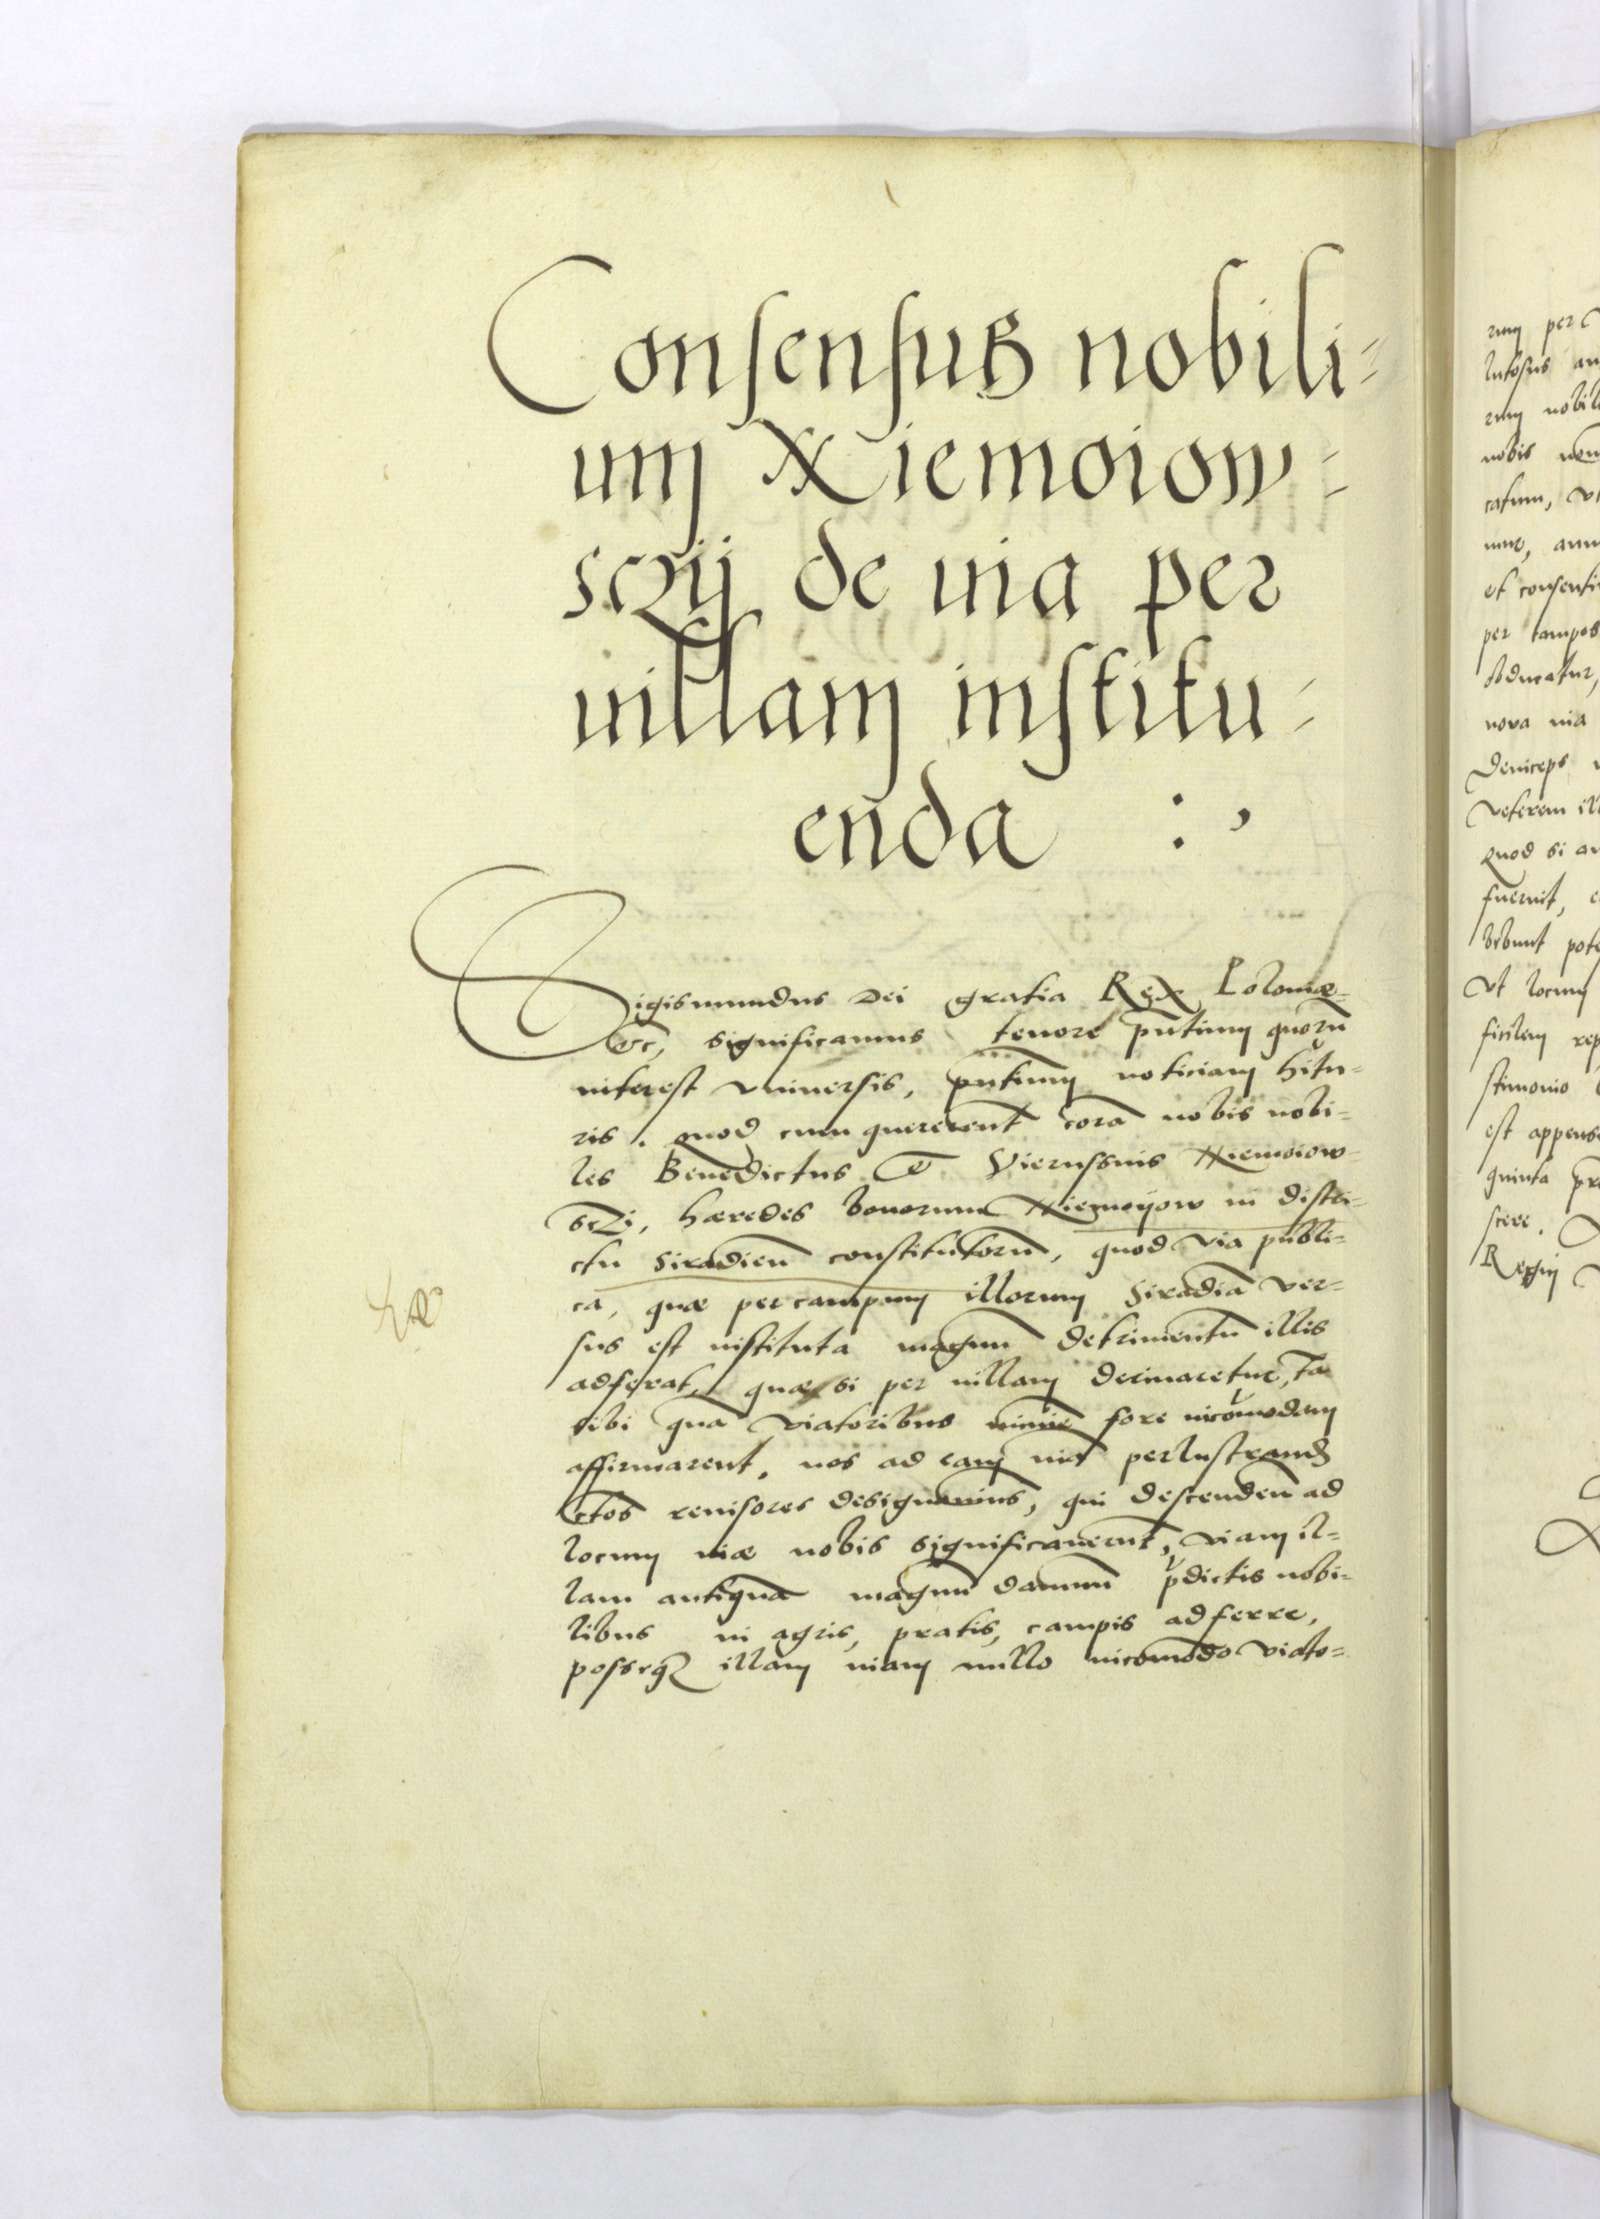 Consensus nobili-
um Niemoiow-
sczij de uia per
uillam institu-
enda :,
Sigismundus Dei gratia Rex Poloniæ
etc, significamus tenore pñtium quorũ
interest vniuersis, pñtium noticiam hitu-
ris. quod cum quererent̃ corã nobis nobi-
les Benedictus et Vierussius Niemoiow-
sczi, hæredes bonorum Niemoijow in distri-
ctu Siradieñ constitutorũ, quod via publi-
ca, quæ per campum illorum Siradiã ver-
sus est instituta magnũ detrimentũ illis
adferat, quæ si per uillam deriuaretur, tã
sibi quã viatoribus minie fore incõmodam
affirmarent, nos ad eam uiã perlustrand
ctos reuisores designauim̃s, qui descendeñ ad
locum uiæ nobis significauerũt, viam il-
lam antiquã magnũ damnũ pdictis nobi-
libus in agris, pratis, campis adferre,
posseqz illam uiam nullo incõmodo viato-
rum per
lutosus
rum nobil
nobis
et consenti
per campos
obducatur,
nova uia
Deinceps
veterem ill
Quod si au
fuerint,
bebunt pote
Vt locum
ficilem rep
stimonio
est appens
quinta
scere.
Regni